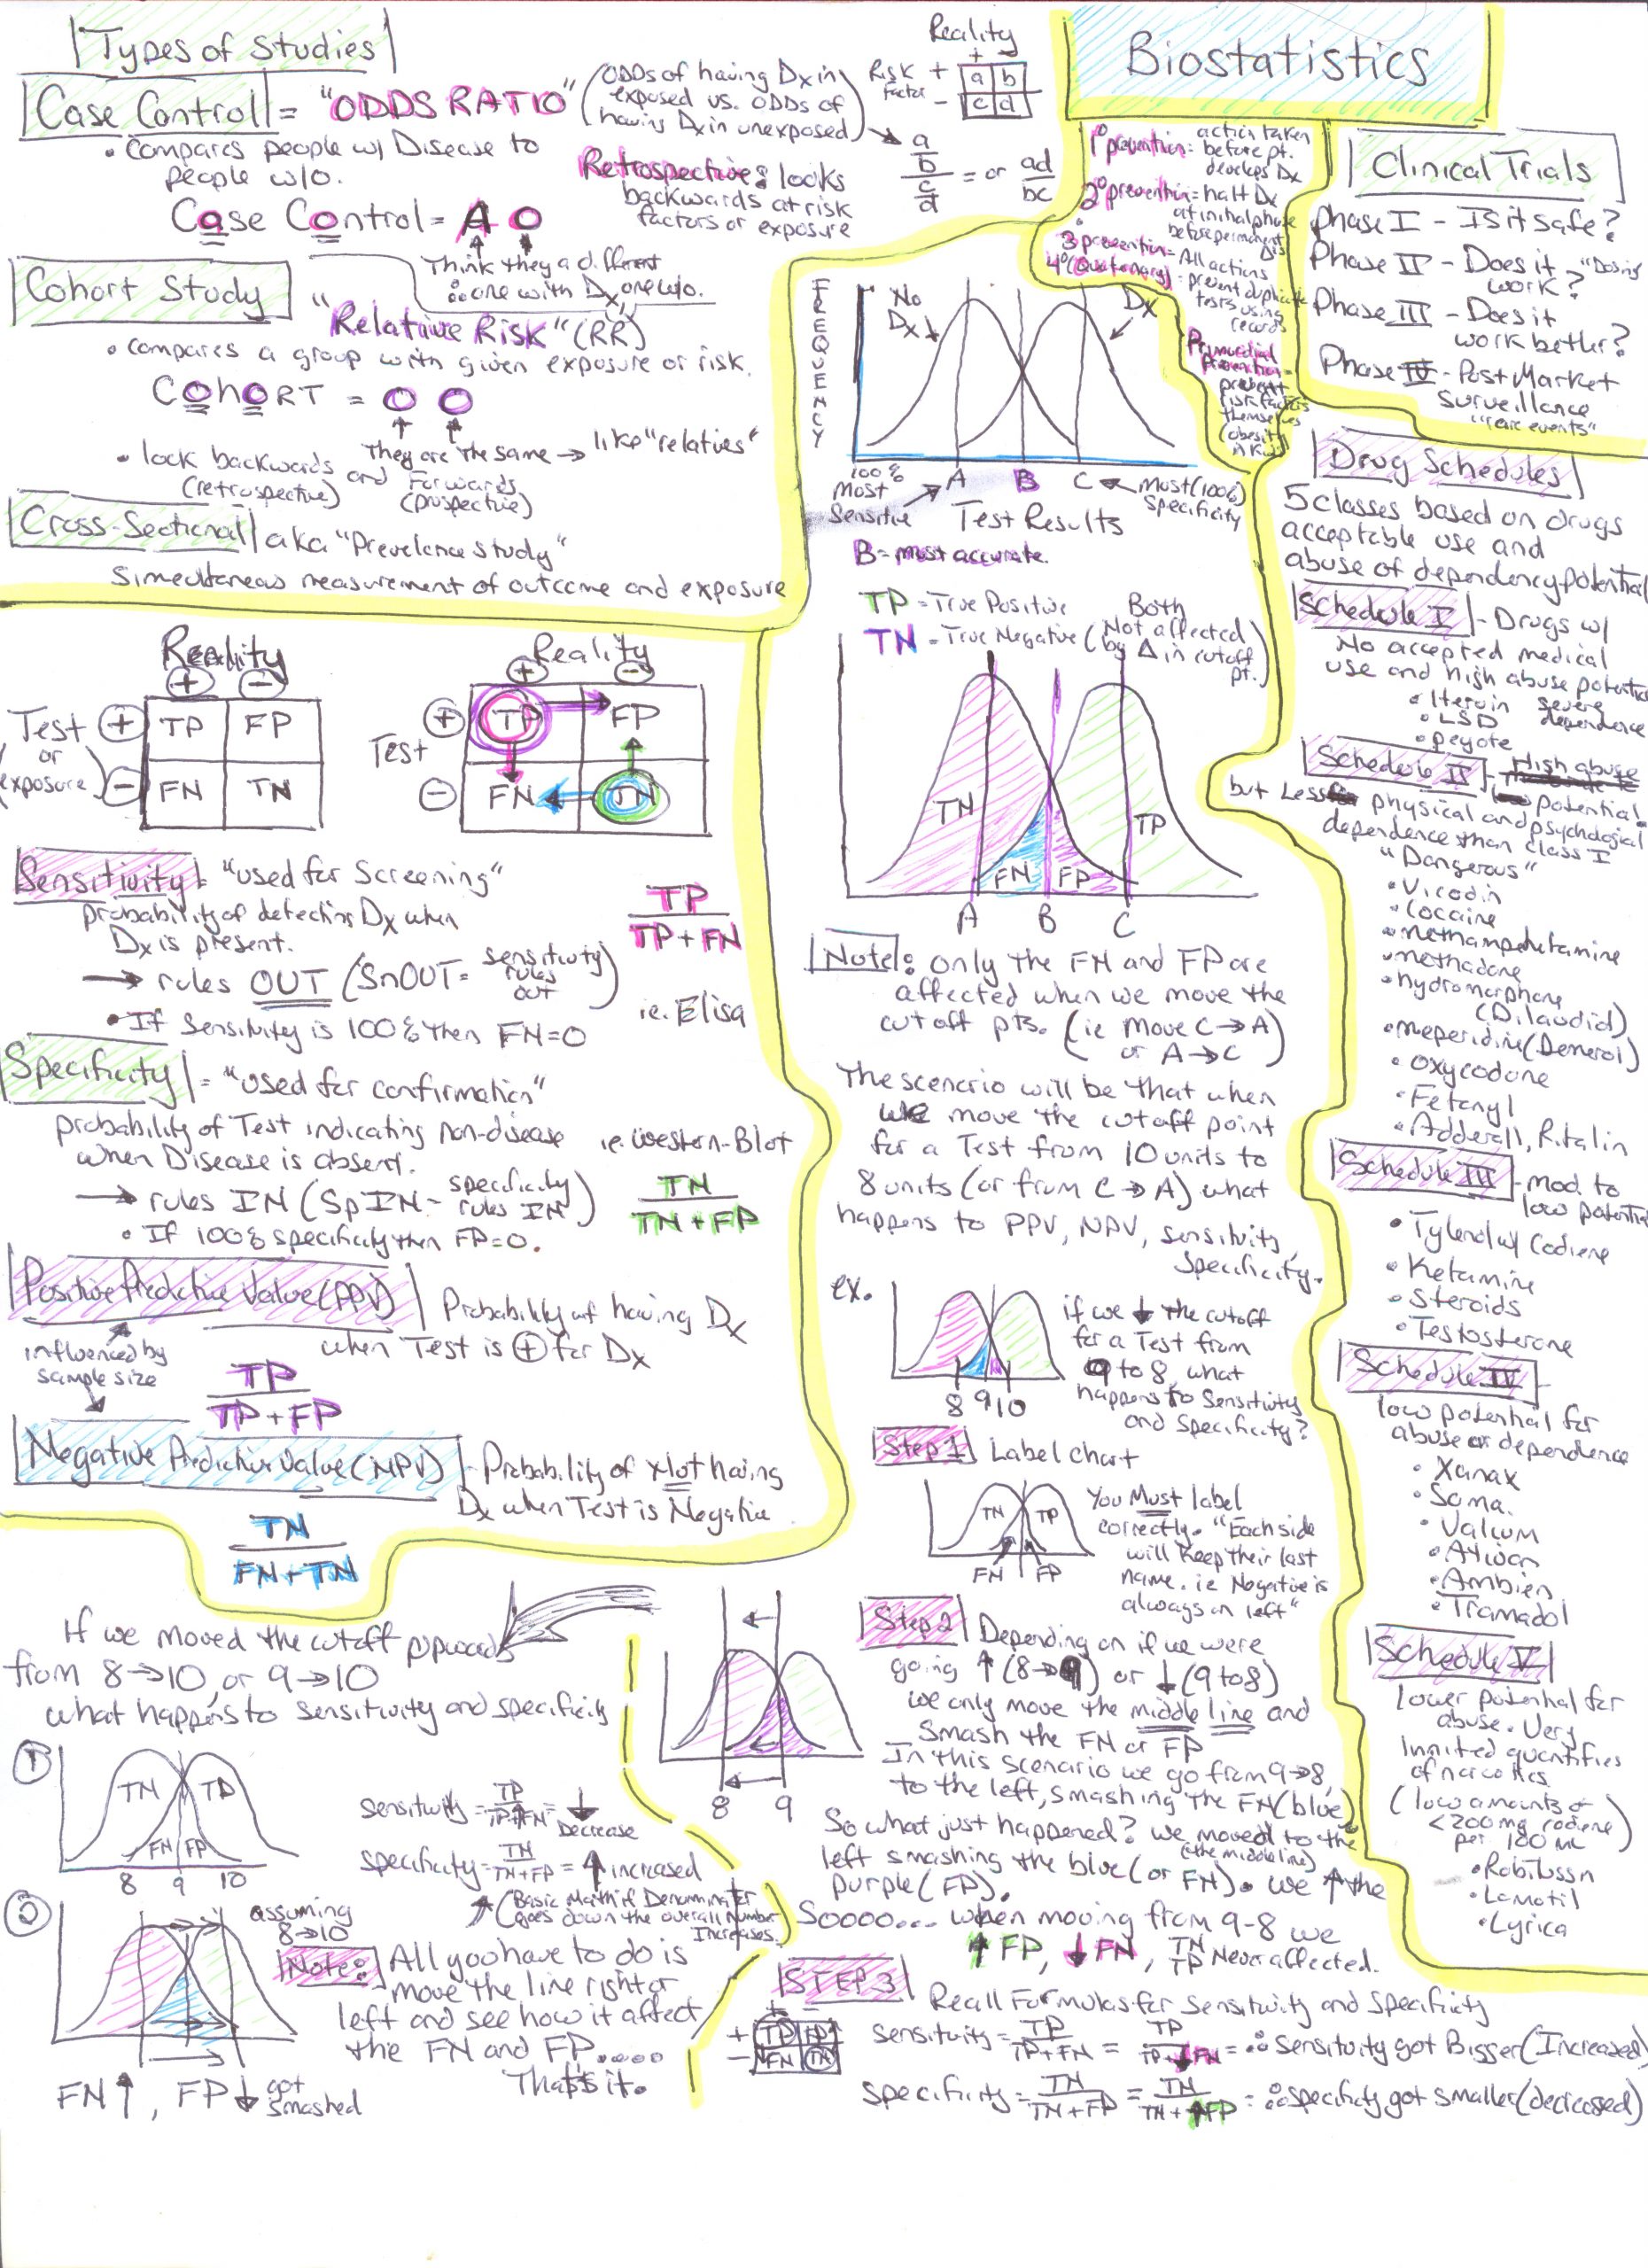 Types of Studies
Case Control = "ODDS RATIO" (ODDs of having Dx in exposed vs. ODDs of having Dx in unexposed)
• Compares people w/ Disease to
people w/o.
Retrospective: looks
backwards at risk
factors or exposure
Case Control = A O
Think they a different
∴ one with Dx, one w/o.
Reality
+ -
Risk factor + a b
- c d
a/b / c/d = or ad/bc
Cohort Study
"Relative Risk" (RR)
• compares a group with given exposure or risk.
COHORT = O O
They are the same → like "relatives"
• look backwards and Forwards
(retrospective) (prospective)
Cross-Sectional aka "Prevelence study"
Simultaneous measurement of outcome and exposure
Biostatistics
1° prevention = action taken
before pt.
develops Dx
2° prevention = halt Dx
at initial phase
before permanent
3 prevention = All actions
4° (Quaternary) = prevent duplicate
tests using
records
Primordial
prevention =
prevent
risk factors
themselves
(obesity
in kids)
Clinical Trials
Phase I - Is it safe?
Phase II - Does it work? "Dosing
Phase III - Does it
work better?
Phase IV - Post Market
Surveillance
"rare events"
FREQUENCY
No Dx
Dx
100% Most Sensitive
A B C
Most (100%) Specificity
Test Results
B = most accurate.
TP = True Positive
TN = True Negative
(Both Not affected by Δ in cutoff pt.)
TN
FN FP
TP
A B C
Note: only the FN and FP are
affected when we move the
cutoff pts. (ie move C → A)
or A → C
The scenerio will be that when
we move the cutoff point
for a Test from 10 units to
8 units (or from C → A) what
happens to PPV, NPV, sensitivity,
Specificity.
ex.
8 9 10
if we ↓ the cutoff
for a Test from
9 to 8, what
happens to Sensitivity
and Specificity?
Step 1 Label chart
TN TP
FN FP
You Must label
correctly. "Each side
will Keep their last
name. ie Negative is
always on left"
Step 2 Depending on if we were
going ↑ (8→9) or ↓ (9 to 8)
we only move the middle line and
smash the FN or FP
In this scenario we go from 9→8,
to the left, smashing the FN (blue)
8 9
So what just happened? we moved to the
(the middle line)
left smashing the blue (or FN). we ↑ the
purple (FP).
Soooo... when moving from 9-8 we
↑ FP, ↓ FN, TN TP Never affected.
STEP 3
Recall Formulas for Sensitivity and Specificity
+ -
+ TP FP
- FN TN
sensitivity = TP/TP+FN = TP/TP+↓FN = ∴ Sensitivity got Bigger (Increased)
specificity = TN/TN+FP = TN/TN+↑FP = ∴ specificity got smaller (decreased)
Reality
+ -
Test or exposure
+ TP FP
- FN TN
Reality
+ -
Test
+ TP FP
- FN TN
Sensitivity = "used for Screening"
probability of detecting Dx when
Dx is present.
TP/TP+FN
→ rules OUT (SnOUT = sensitivity rules out)
• If Sensitivity is 100% then FN=0
ie. Elisa
Specificity = "used for confirmation"
probability of Test indicating non-disease
when Disease is absent.
ie. Western-Blot
→ rules IN (SpIN - specificity rules IN)
TN/TN+FP
• If 100% specificity then FP=0.
Positive Predictive Value (PPV) Probability of having Dx
when Test is + for Dx
influenced by
sample size
TP/TP+FP
Negative Predictive Value (NPV) - Probability of Not having
Dx when Test is Negative
TN/FN+TN
If we moved the cutoff upwards
from 8→10, or 9→10
what happens to sensitivity and specificity
1
TN TP
FN FP
8 9 10
sensitivity = TP/TP+↑FN = ↓ Decrease
specificity = TN/TN+FP = ↑ increased
(Basic Math if Denominator
goes down the overall Number
Increases.)
2
assuming
8→10
FN↑, FP↓ got smashed
Note: All you have to do is
move the line right or
left and see how it affect
the FN and FP.....
Thats it.
Drug Schedules
5 classes based on drugs
acceptable use and
abuse of dependency potential
Schedule I - Drugs w/
No accepted medical
use and high abuse potential
• Heroin severe
• LSD dependence
• peyote
Schedule II - High abuse
potential.
but Less physical and psychological
dependence than class I
"Dangerous"
• Vicodin
• Cocaine
• methamphetamine
• methadone
• hydromorphone
(Dilaudid)
• meperidine (Demerol)
• Oxycodone
• Fetanyl
• Adderall, Ritalin
Schedule III - mod. to
low potential
• Tylenol w/ Codiene
• Ketamine
• Steroids
• Testosterone
Schedule IV -
low potential for
abuse or dependence
• Xanax
• Soma.
• Valium
• Ativan
• Ambien
• Tramadol
Schedule V
lower potential for
abuse. Very
limited quantities
of narcotics.
(low amounts of
<200mg codiene
per 100 mL)
• Robitussin
• Lomotil
• Lyrica